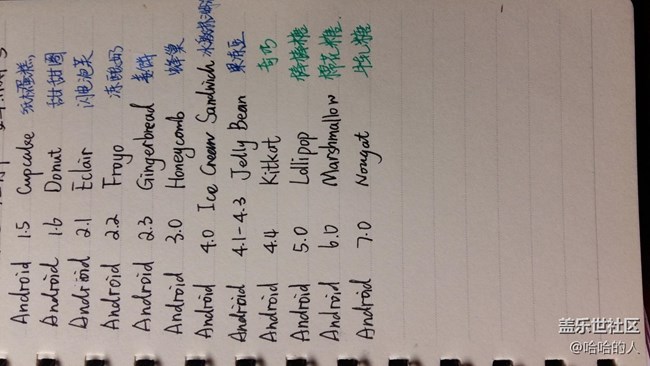 Android 1.5 Cupcake 纸杯蛋糕,
Android 1.6 Donut 甜甜圈
Android 2.1 Eclair 闪电泡芙
Android 2.2 Froyo 冻酸奶
Android 2.3 Gingerbread 姜饼
Android 3.0 Honeycomb 蜂巢
Android 4.0 Ice Cream Sandwich 冰激凌
Android 4.1-4.3 Jelly Bean 果冻豆
Android 4.4 Kitkat 奇巧
Android 5.0 Lollipop 棒棒糖
Android 6.0 Marshmallow 棉花糖.
Android 7.0 Nougat 牛轧糖
盖乐世社区
@哈哈的人